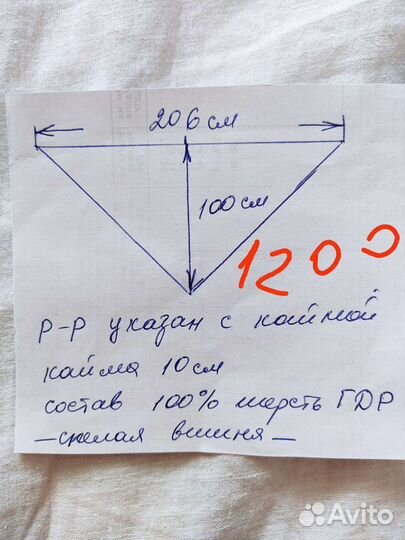 206 см
100 см
1200
Р-р указан с каймой
кайма 10 см
состав 100% шерсть ГДР
— спелая вишня —
Avito